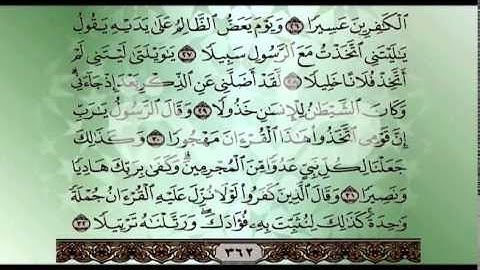 ٱلۡكَٰفِرِينَ عَسِيرًا ٢٦ وَيَوۡمَ يَعَضُّ ٱلظَّالِمُ عَلَىٰ يَدَيۡهِ يَقُولُ
يَٰلَيۡتَنِي ٱتَّخَذۡتُ مَعَ ٱلرَّسُولِ سَبِيلٗا ٢٧ يَٰوَيۡلَتَىٰ لَيۡتَنِي لَمۡ
أَتَّخِذۡ فُلَانًا خَلِيلٗا ٢٨ لَّقَدۡ أَضَلَّنِي عَنِ ٱلذِّكۡرِ بَعۡدَ إِذۡ جَآءَنِيۗ
وَكَانَ ٱلشَّيۡطَٰنُ لِلۡإِنسَٰنِ خَذُولٗا ٢٩ وَقَالَ ٱلرَّسُولُ يَٰرَبِّ
إِنَّ قَوۡمِي ٱتَّخَذُواْ هَٰذَا ٱلۡقُرۡءَانَ مَهۡجُورٗا ٣٠ وَكَذَٰلِكَ
جَعَلۡنَا لِكُلِّ نَبِيٍّ عَدُوّٗا مِّنَ ٱلۡمُجۡرِمِينَۗ وَكَفَىٰ بِرَبِّكَ هَادِيٗا
وَنَصِيرٗا ٣١ وَقَالَ ٱلَّذِينَ كَفَرُواْ لَوۡلَا نُزِّلَ عَلَيۡهِ ٱلۡقُرۡءَانُ جُمۡلَةٗ
وَٰحِدَةٗۚ كَذَٰلِكَ لِنُثَبِّتَ بِهِۦ فُؤَادَكَۖ وَرَتَّلۡنَٰهُ تَرۡتِيلٗا ٣٢
٣٦٢